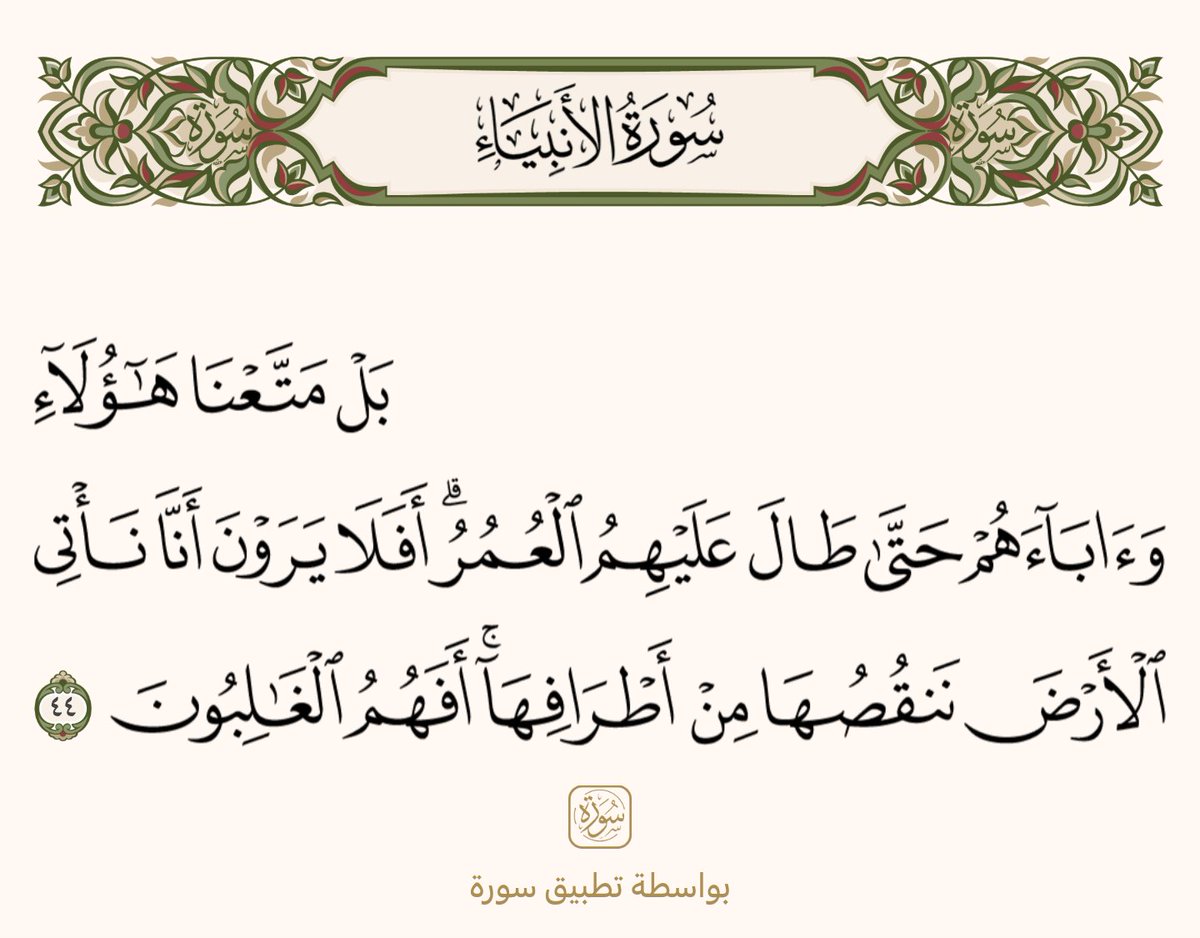 سُورَةُ الأَنبِيَاءِ
بَلۡ مَتَّعۡنَا هَٰٓؤُلَآءِ
وَءَابَآءَهُمۡ حَتَّىٰ طَالَ عَلَيۡهِمُ ٱلۡعُمُرُۗ أَفَلَا يَرَوۡنَ أَنَّا نَأۡتِي
ٱلۡأَرۡضَ نَنقُصُهَا مِنۡ أَطۡرَافِهَآۚ أَفَهُمُ ٱلۡغَٰلِبُونَ ٤٤
سُورَة
بواسطة تطبيق سورة